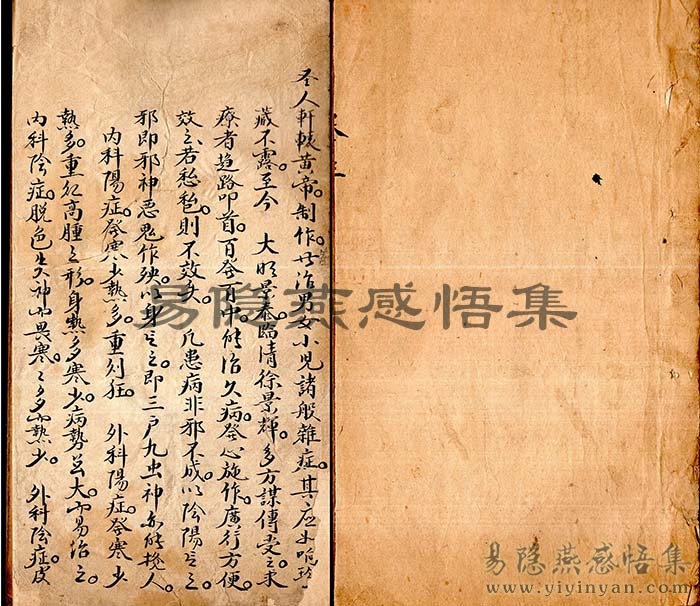 圣人軒轅黃帝。制作廿治男女小児諸般雜症。其应
藏不露。至今 大明景泰。臨清徐景輝。多方謀傳受之。求
療者塔路叩首。百發百中。能治久病。發心施作。廣行方便
效之。若愁 則不效矣。凡患病非邪不成。以陰陽言之
邪即邪神悪鬼作殃。以身言之。即三尸九虫神亦能挠人。
内科陽症。發寒少熱多。重則狂。 外科陽症。發寒少
熱多。重 高腫之形。身熱多寒少。病勢 大而易治之。
内科陰症。脱色失神而畏寒。之多而熱少。 外科陰症皮
易隐燕感悟集
易隐燕感悟集
www.yiyinyan.com